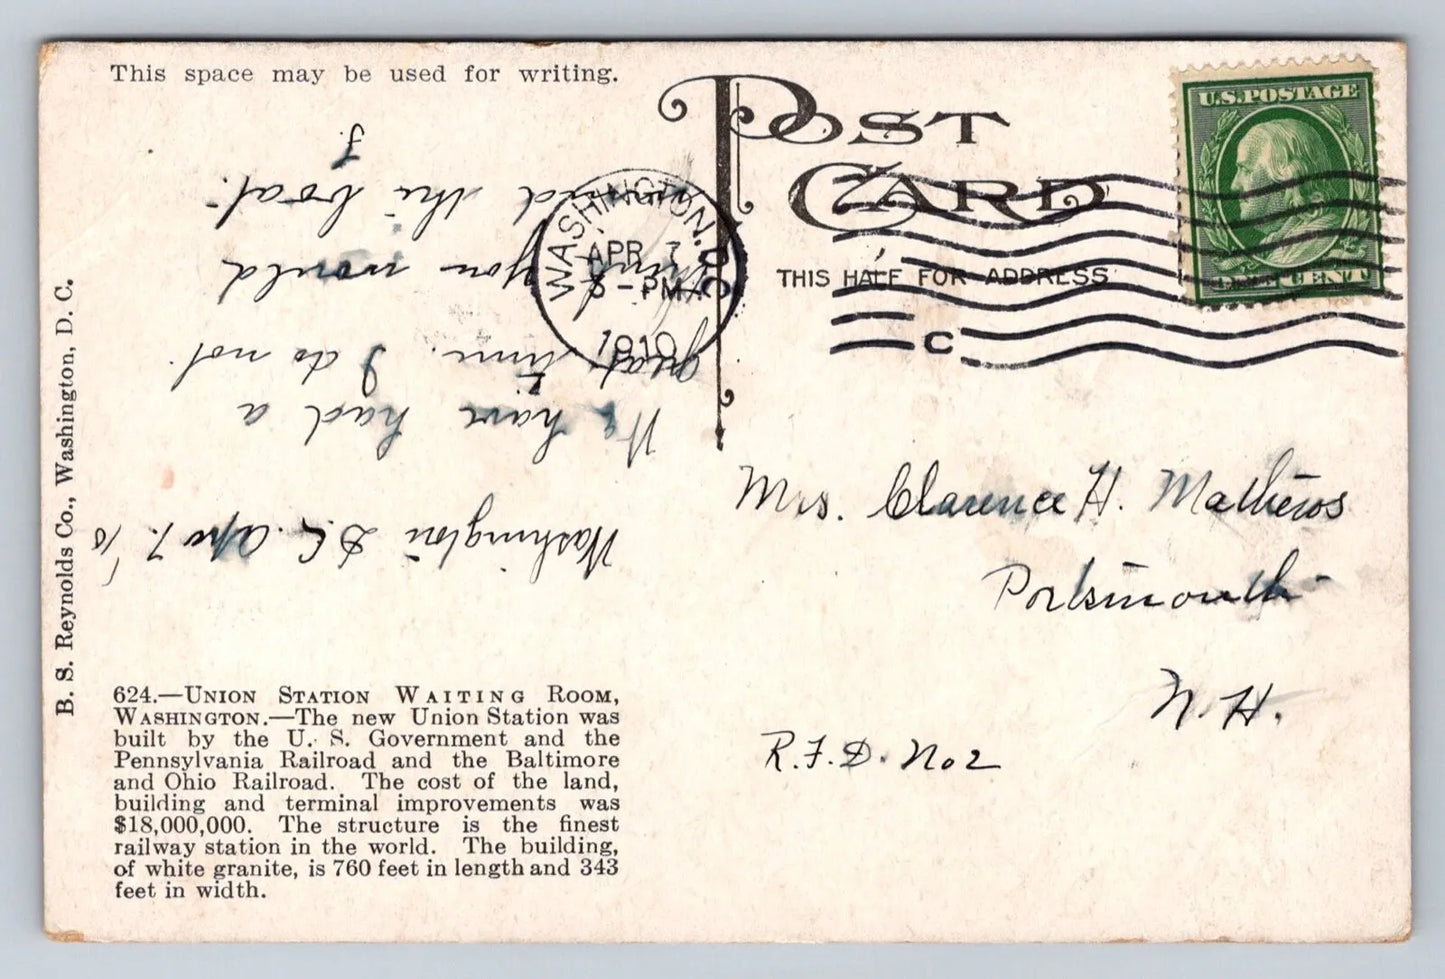 This space may be used for writing.
POST
CARD
THIS HALF FOR ADDRESS
U.S. POSTAGE
CENT
WASHINGTON, D.C.
APR 7
-PM
1910
C
Washington D.C. Apr 7. /10
We have had a
great time. I do not
think you would
mind the boat.
Mrs. Clarence H. Mathews
Portsmouth
N. H.
R.F.D. No 2
B. S. Reynolds Co., Washington, D. C.
624.—UNION STATION WAITING ROOM,
WASHINGTON.—The new Union Station was
built by the U. S. Government and the
Pennsylvania Railroad and the Baltimore
and Ohio Railroad. The cost of the land,
building and terminal improvements was
$18,000,000. The structure is the finest
railway station in the world. The building,
of white granite, is 760 feet in length and 343
feet in width.